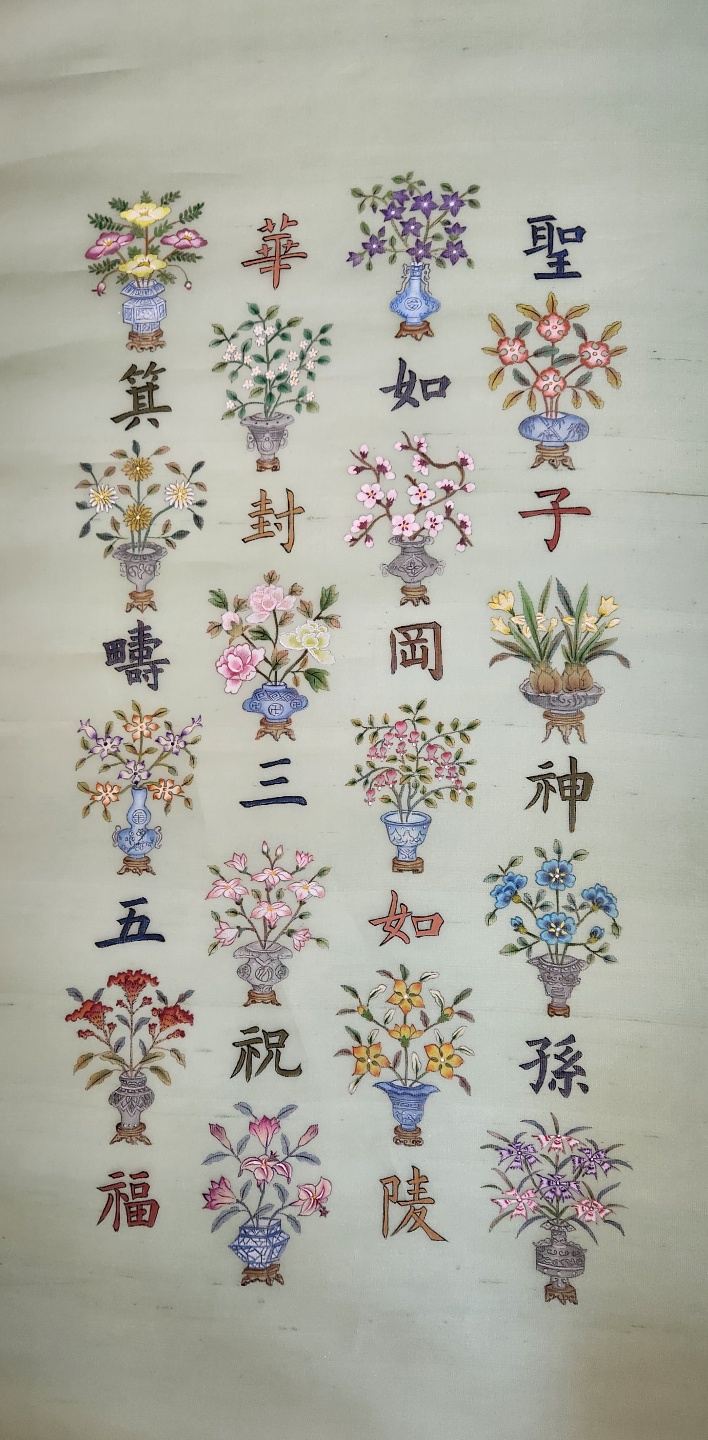 聖子神孫
如岡如陵
華封三祝
箕疇五福